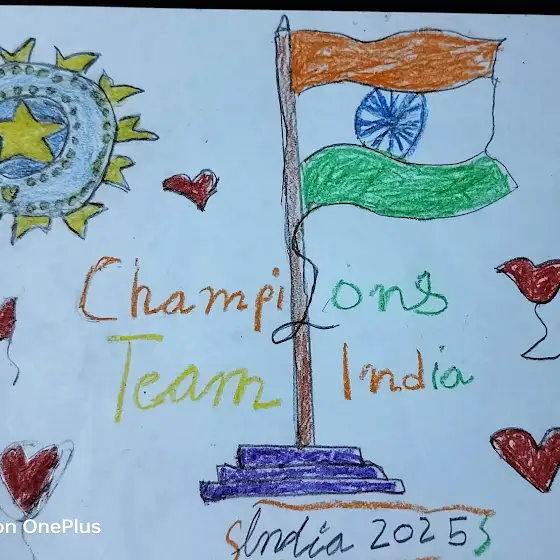 Champions
Team India
India 2025
on OnePlus